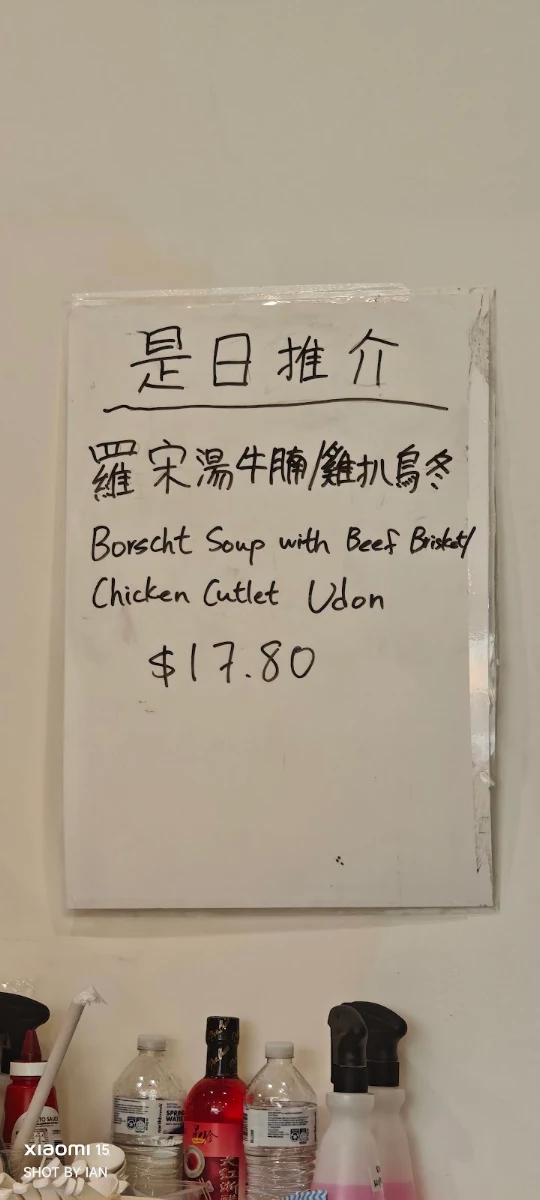 是日推介
羅宋湯牛腩/雞扒烏冬
Borscht Soup with Beef Brisket/
Chicken Cutlet Udon
$17.80
SPRING
WATER
大紅浙醋
xiaomi 15
SHOT BY IAN